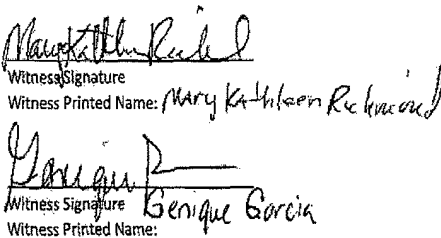 Witness Signature
Witness Printed Name: Mary Kathleen Richmond
Witness Signature Genique Garcia
Witness Printed Name: